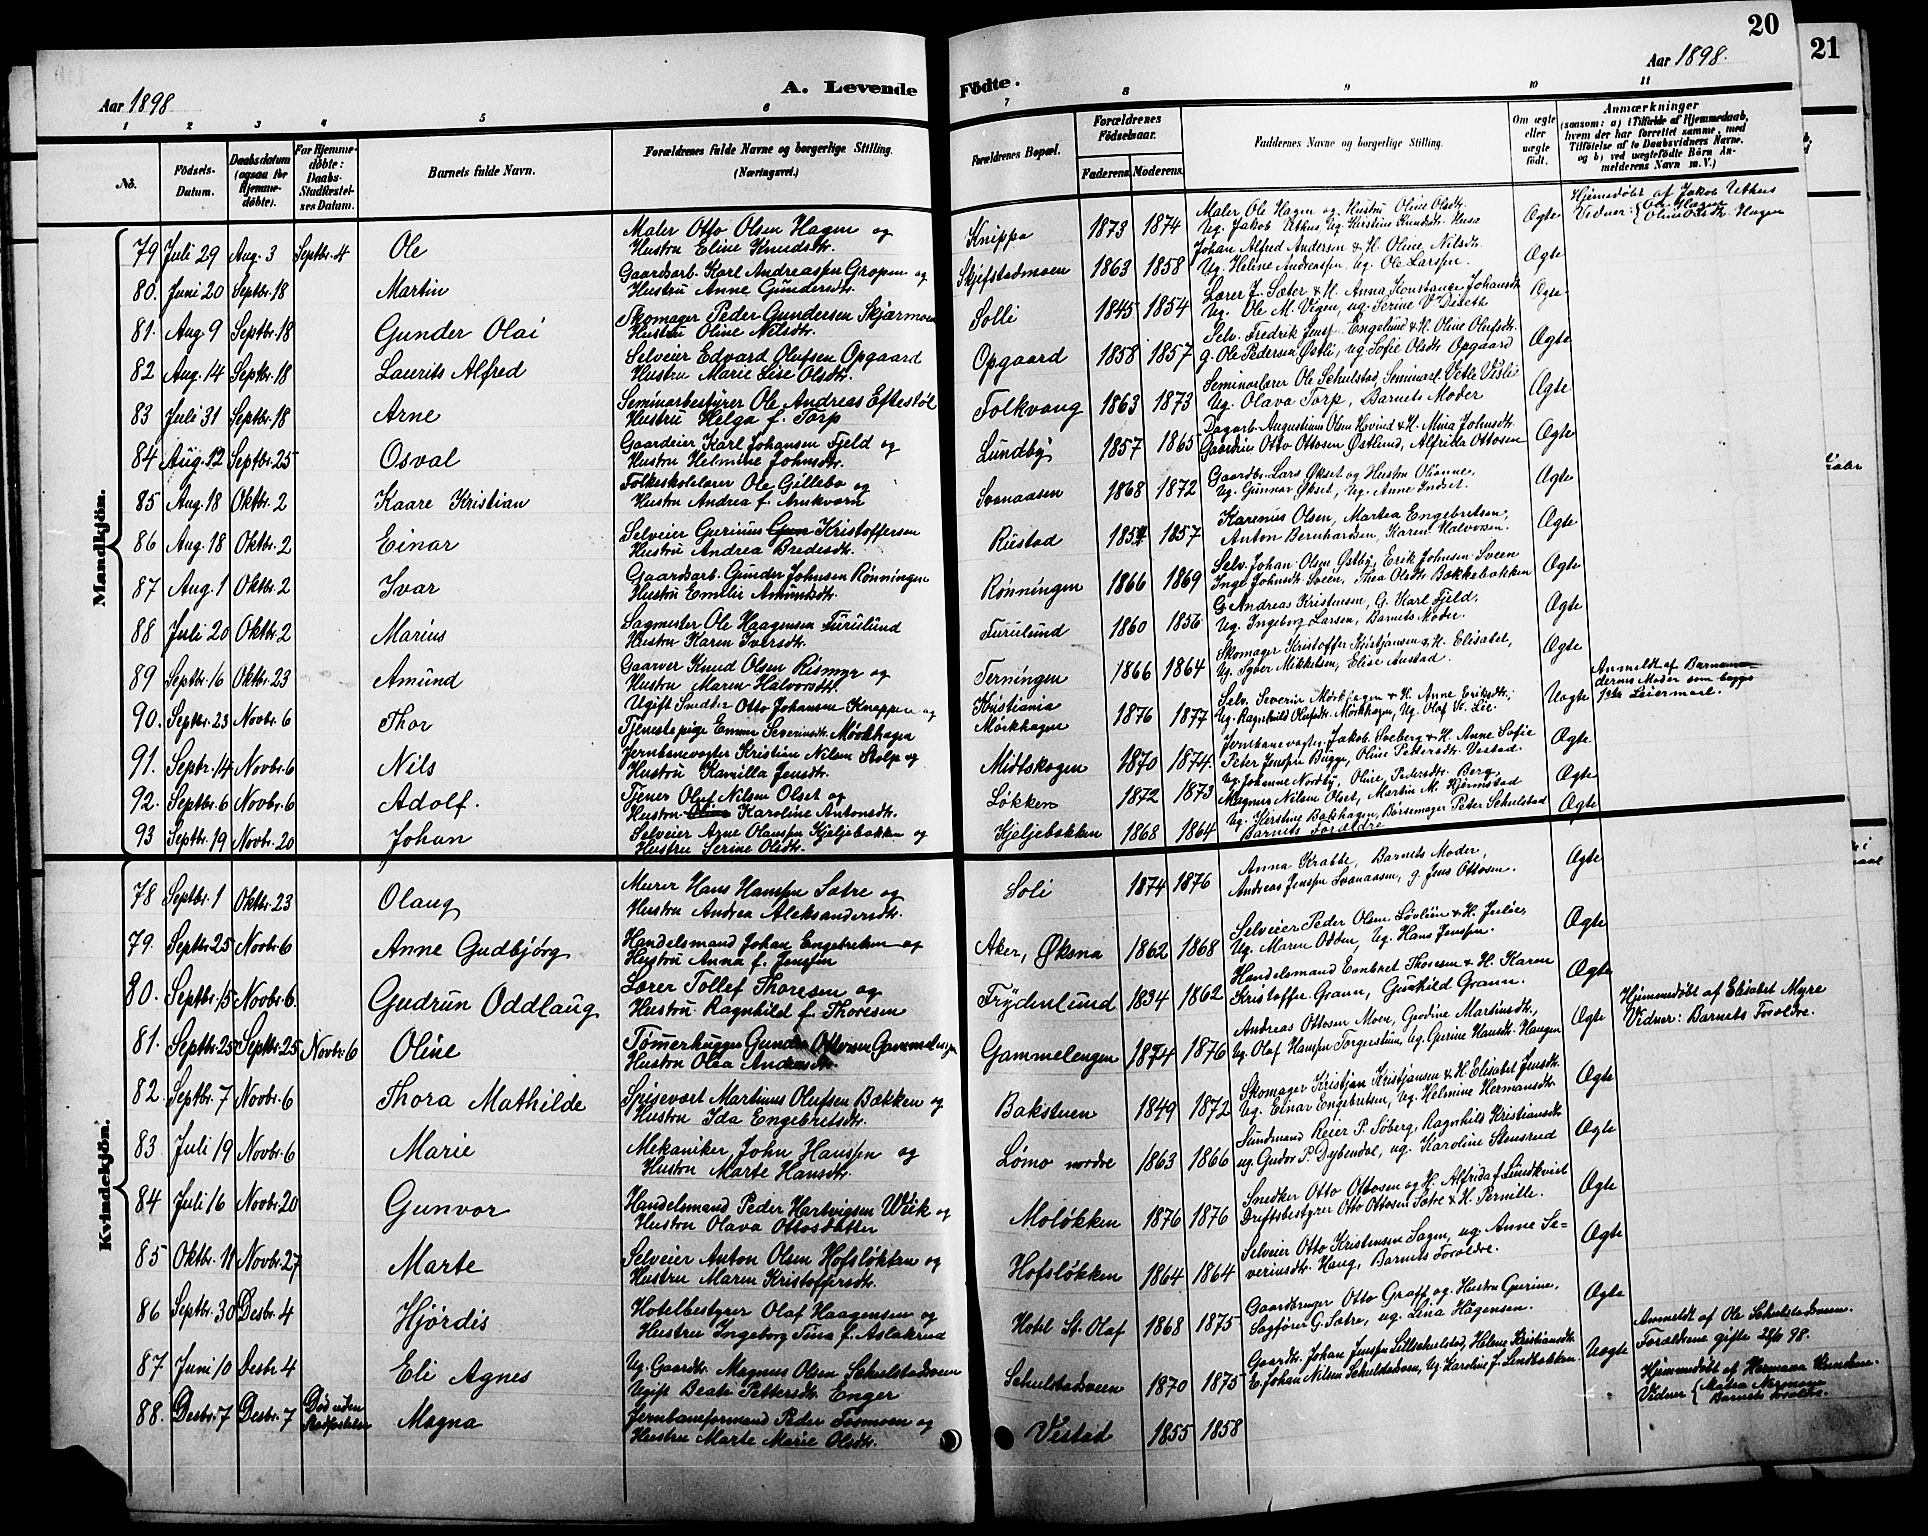 20
21
Aar 1898
A. Levende
Födte.
Aar 1898.
1 2 3 4 5 6 7 8 9 10 11
No.
Födsels-Datum.
Daabsdatum (ogsaa for Hjemmedöbte).
For Hjemmedöbte: Daabs-Stadfæstelses Datum.
Barnets fulde Navn.
Forældrenes fulde Navne og borgerlige Stilling. (Næringsvei.)
Forældrenes Bopæl.
Forældrenes Födselsaar.
Faderens. Moderens.
Faddernes Navne og borgerlige Stilling.
Om ægte eller uægte födt.
Anmærkninger
(saasom: a) i Tilfælde af Hjemmedaab, hvem der har forrettet samme, med Tilföielse af to Daabsvidners Navne, og b) ved uægtefödte Börn Anmelderens Navn m. V.)
Mandkjön.
79 Juli 29 Aug. 3 Septbr. 4 Ole Maler Otto Olsen Hagen og Knippa 1873 1874 Maler Ole Hagen og Hustru Oline Olsdtr. Ægte Hjemmedøbt af Jakob Uthus
Hustru Eline Knudsdtr. Ug. Jakob Uthus, Ug. Kirstine Knudsdtr. Vidner: Ole Hagen Oline Olsdtr. Hagen
80. Juni 20 Septbr. 18 Martin Gaardsarb. Karl Andreassen Gropen og Skjefstadmoen 1863 1858 Johan Alfred Andersen & H. Oline Nilsdtr. Ægte
Hustru Anne Gundersdtr. Ug. Heline Andreassen, Ug. Ole Larssen.
81. Aug. 9 Septbr. 18 Gunder Olai Skomager Peder Gundersen Skjærmoen Solli 1845 1854 Lærer J. Sæter & H. Anna Konstance Johansdtr. Ægte
Hustru Oline Nilsdtr. Ug. Ole M. Vigen, ug. Serine
82 Aug. 14 Septbr. 18 Laurits Alfred Selveier Edvard Olufsen Opgaard Opgaard 1858 1857 Selv. Fredrik Jenss. Engelund & H. Oline Olufsdtr. Ægte
Hustru Marie Lise Olsdtr. g. Ole Pedersen Østli, ug. Sofie Olsdtr. Opgaard
83 Juli 31 Septbr. 18 Arne Seminarbestyrer Ole Andreas Eftestøl Folkvang 1863 1873 Seminarlærer Ole Schulstad, Seminarl. Vetle Vislie Ægte
Hustru Helga f. Torp Ug. Olava Torp, Barnets Moder
84 Aug. 12 Septbr. 25 Osval Gaardeier Karl Johansen Fjeld og Lundby 1857 1865 Dagarb. Augustinus Olsen Hovind & H. Mina Johnsdtr. Ægte
Hustru Helmine Johnsdtr. Gaardeier Otto Ottosen Østlund, Alfrida Ottosen
85 Aug. 18 Oktbr. 2 Kaare Kristian Folkeskolelærer Ole Gillebo og Svenaasen 1868 1872 Gaardbr. Lars Økset og Hustru Olianne, Ægte
Hustru Andrea f. Arnkværn Ug. Gunnar Økset, Ug. Anne Indset.
86 Aug. 18 Oktbr. 2 Einar Selveier Gurinius Gun Kristoffersen Rustad 1854 1857 Karenius Olsen, Martea Engebretsen, Ægte
Hustru Andrea Bredesdtr. Anton Bernhardsen, Karen Halvorsen.
87 Aug. 1 Oktbr. 2 Ivar Gaardsarb. Gunder Johnsen Rønningen Rønningen 1866 1869 Selv. Johan Olsen Østby, Erik Johnsen Sveen Ægte
Hustru Emelie Amundsdtr. Inge Johnsdtr. Sveen, Thea Olsdtr. Bækkebakken
88 Juli 20 Oktbr. 2 Marius Sagmester Ole Haagensen Furulund Furulund 1860 1856 G. Andreas Kristensen, G. Karl Fjeld, Ægte
Hustru Karen Iversdtr. Ug. Ingeborg Larsen, Barnets Moder
89 Septbr. 16 Oktbr. 23 Amund Gaarver Knud Olsen Rismyr og Terningen 1866 1864 Skomager Kristoffer Kristjansen & H. Elisabet, Ægte
Hustru Maren Halvorsdtr. Ug. Syver Mikkelsen, Elise Austad.
90. Septbr. 23 Novbr. 6 Thor Ugift Snedker Otto Johansen Kneppen og Kristiania 1876 1877 Selv. Severin Mørkhagen & H. Anne Eriksdtr. Uægte Anmeldt af Barnets Moder som begges 1ste Leiermaal.
Tjenestepige Emma Severinsdtr. Mørkhagen Mørkhagen Ug. Ragnhild Olufsdtr. Mørkhagen, Ug. Olaf St. Lie
91. Septr. 14 Novbr. 6 Nils Jernbanevogter Kristian Nilsen Stolp og Midtskogen 1870 1874 Jernbanevogter Jakob Sveberg & H. Anne Sofie Ægte
Hustru Kamilla Jensdtr. Peter Jenssen Bugge, Oline Pettersdtr. Vestad.
92. Septbr. 6 Novbr. 6 Adolf. Tjener Oluf Nilsen Olset og Løkken 1872 1873 Ug. Johanne Nordby, Oline Pedersdtr. Berg, Ægte
Hustru Karoline Antonsdtr. Magnus Nilsen Olset, Martin M. Hjermstad
93 Septbr. 19 Novbr. 20 Johan Selveier Arne Olaussen Kjeljebakken og Kjeljebakken 1868 1864 Ug. Kirstine Bakhagen, Børsemager Peter Schulstad Ægte
Hustru Serine Olsdtr. Barnets Forældre
Kvindekjön.
78 Septbr. 1 Oktbr. 23 Olaug Murer Hans Hanssen Sætre og Soli 1874 1876 Anna Krabbe, Barnets Moder, Ægte
Hustru Andrea Aleksandersdtr. Andreas Jenssen Svenaasen, g. Jens Ottosen.
79. Septbr. 25 Novbr. 6 Anne Gudbjörg Handelsmand Johan Engebretsen og Aker, Øksna 1862 1868 Selveier Peder Olsen Løvlien & H. Julie, Ægte
Hustru Anna f. Jenssen Ug. Maren Odden, Ug. Hans Jenssen.
80. Septbr. 15 Novbr. 6. Gudrun Oddlaug Lærer Tollef Thoresen og Frydenlund 1834 1862 Handelsmand Embret Thoresen & H. Karen Ægte
Hustru Ragnhild f. Thoresen Kristoffer Grann, Gunhild Grann.
81. Septbr. 25 Septbr. 25 Novbr. 6 Oline Tømerhugger Gunder Ottersen Gammelengen Gammelengen 1874 1876 Andreas Ottosen Moen, Gurdine Martinsdtr., Ægte Hjemmedøbt af Elisabet Myre
Hustru Olea Andersdtr. Ug. Olaf Hanssen Torgerstuen, Ug. Gurine Hansdtr. Haugen Vidner: Barnets Forældre.
82 Septbr. 7 Novbr. 6 Thora Mathilde Spisevært Martinus Olufsen Bækken og Bakstuen 1849 1872 Skomager Kristjan Kristjansen & H. Elisabet Jensdtr. Ægte
Hustru Ida Engebretsdtr. Ug. Einar Engebretsen, Ug. Helmine Hermansdtr.
83 Juli 19 Novbr. 6 Marie Mekaniker John Hanssen og Lømo nordre 1863 1866 Sundmand Reier P. Søberg, Ragnhild Kristiansdtr. Ægte
Hustru Marte Hansdtr. ug. Gudor P. Dybendal, ug. Karoline Stensrud
84 Juli 16 Novbr. 20 Gunvor Handelsmand Peder Hartvigsen Wiik og Moløkken 1876 1876 Snedker Otto Ottosen og H. Alfrida f. Lundkvist Ægte
Hustru Olava Ottosdatter Driftsbestyrer Otto Ottosen Sætre & H. Pernille.
85 Oktbr. 11 Novbr. 27 Marte Selveier Anton Olsen Hofsløkken og Hofsløkken 1864 1864 Selveier Otto Kristensen Sagen, ug. Anne Se= Ægte
Hustru Maren Kristoffersdtr. verinsdtr. Haug, Barnets Forældre.
86 Septbr. 30 Desbr. 4 Hjördis Hotelbestyrer Olaf Haagensen og Hotel St. Olaf 1868 1875 Gaardbruger Otto Graff og Hustru Gurine, Ægte
Hustru Ingeborg Tina f. Aslakrud Sagfører G. Sætre, ug. Lina Hågensen.
87 Juni 10 Desbr. 4 Eli Agnes Ug. Gaardbr. Magnus Olsen Schulstadsveen Schulstadsveen 1870 1875 Gaardbr. Johan Jenssen Lillschulstad, Helene Kristiansdtr. Uægte Anmeldt af Ole Schulstadsveen.
Ugift Beate Pettersdtr. Enger E. Johan Nilsen Schulstadsveen, Ug. Karoline J. Lindbakken Forældrene gifte 25/6 98.
88. Desbr. 7 Desbr. 7 Död uden Stadfæstelse Magna Jernbaneformand Peder Tosmoen og Vestad 1855 1858 Hjemmedøbt af Hermana
Hustru Marte Marie Olsdtr. Vidner Matea Barnets Forældre.